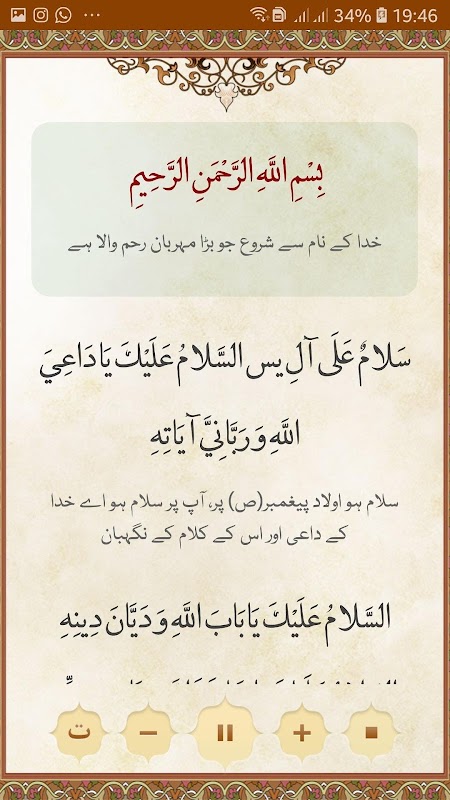 34% 19:46
بِسْمِ اللَّهِ الرَّحْمَنِ الرَّحِيمِ
خدا کے نام سے شروع جو بڑا مہربان رحم والا ہے
سَلامٌ عَلَى آلِ يس السَّلامُ عَلَيْكَ يَا دَاعِيَ
اللَّهِ وَ رَبَّانِيَّ آيَاتِهِ
سلام ہو اولاد پیغمبر(ص) پر، آپ پر سلام ہو اے خدا
کے داعی اور اس کے کلام کے نگہبان
السَّلامُ عَلَيْكَ يَا بَابَ اللَّهِ وَ دَيَّانَ دِينِهِ
ت